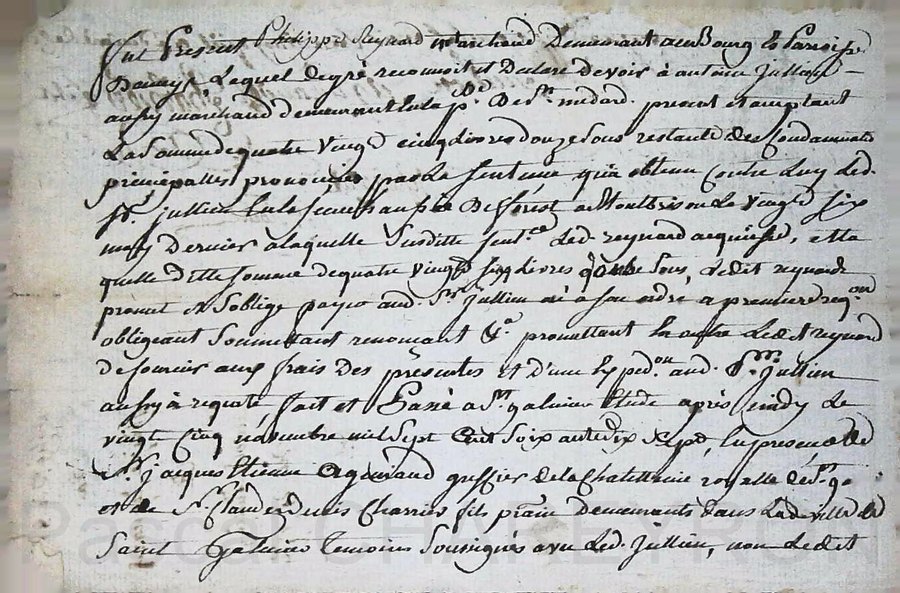 fut Present Philippe Reynard Marchand Demeurant au Bourg & Paroisse
Lequel de gré reconnoit et Declare devoir à antoine Jullien
aussy marchand demeurant en la p.se De St. medard present et acceptant
La Somme de quatre Vingt cinq livres douze Sous restante des Condamnations
principalles prononcées par la Sentence qu'a obtenu Contre luy led.
Sr. Jullien en la senechaussée De fforest a Montbrison Le Vingt Six
may Dernier a laquelle Susditte Sent.ce led. reynard acquiesse, et la
quelle ditte Somme de quatre Vingt cinq livres douze Sous, ledit reynard
promet et Soblige payer aud. Sr. Jullien ou a Son ordre a premiere req.on
obligeant Soumettant renonçant &a. promettant en outre Ledit reynard
de fournir aux frais des presentes et d'une Exped.on aud. Sr. Jullien
aussy a requete fait et Passé a St. galmier Etude après midy le
vingt Cinq novembre mil Sept Cent Soixante dix Sept, En presence de
Sr. Jacques Etienne greffier de la Chatellenie royalle de St. ga
et de Sr. Claude denis Charrier fils prain Demeurants dans Ladite ville de
Saint Galmier temoins Soussignés avec led. Jullien, non Ledit
Pascal CHAPEYRON